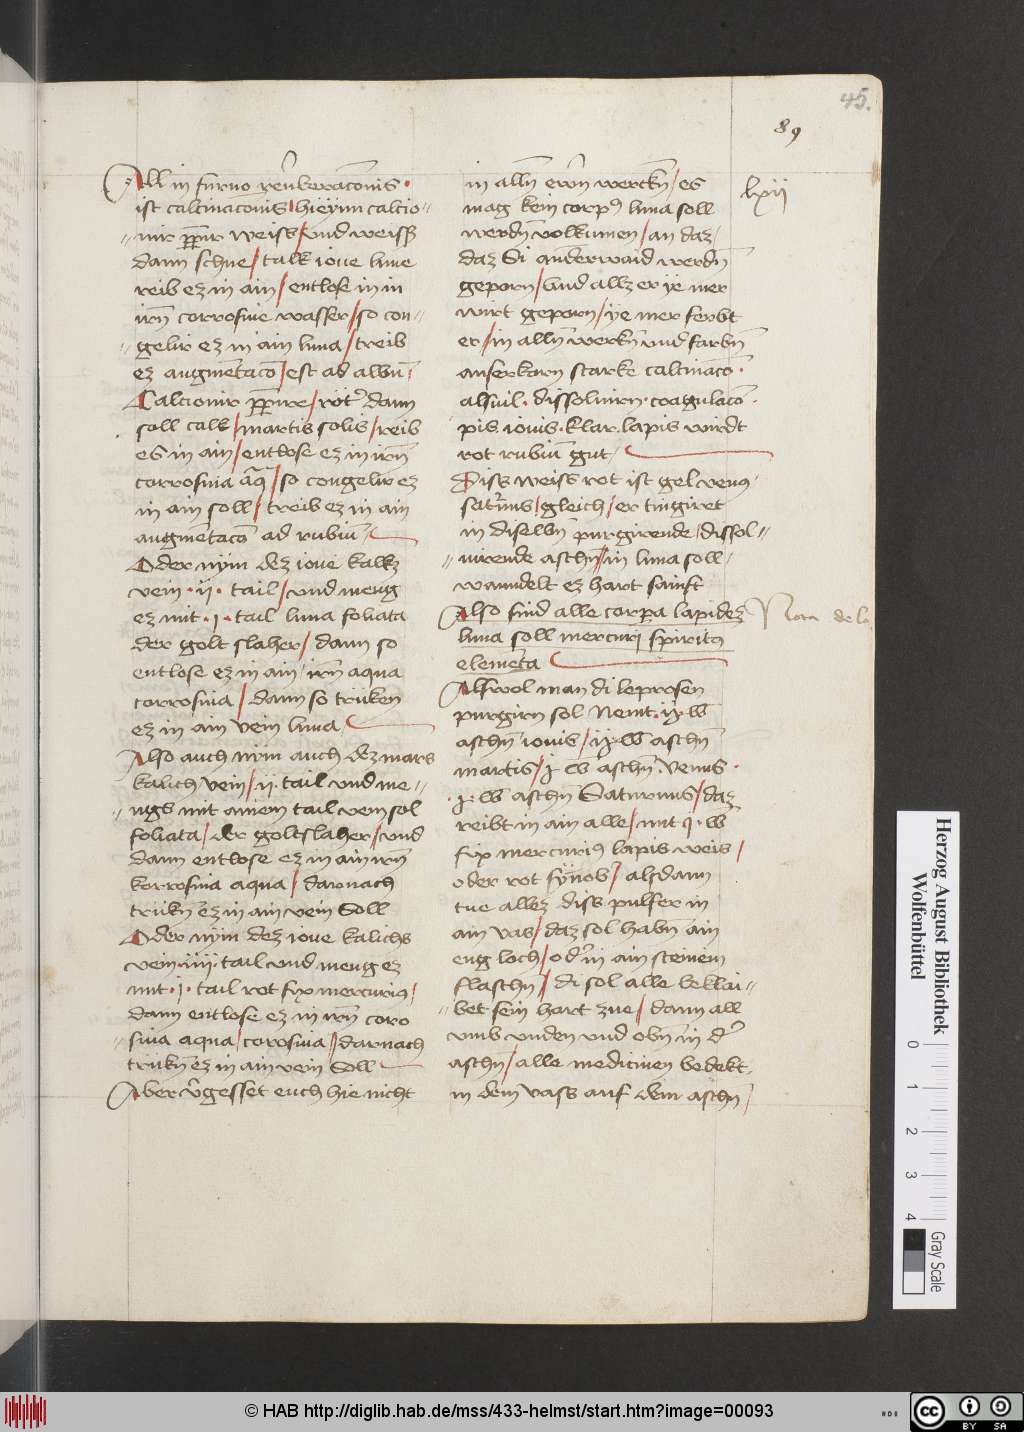 45.
89
lxii
All in furno reũberacõnis ·
ist calcinaconis / hieÿnn calcio-
-nir ꝑpur weiss / vnd weisß
dann schne / talk ioue lune
reib ez in ain / entlose in in
irñ corrosiue wasser / so con-
-gelir ez in ain luna / treib
ez augmẽtacõ / est ad albũ /
Calcionir ꝑpure / röt dann
soll calk / martis solis / reib
es in ain / entlose ez in irñ
corrosiua aq̃ / so congelir ez
in ain soll / treib ez in ain
augmẽtacõ ad rubiũ /
Oder nÿm dez ioue kalkz
vein · ii · tail / vnd meng
ez mit · i · tail luna foliata
der golt slaher / dann so
entlose ez in ain / irñ aqua
corrosiua / dann so trüken
ez in ain vein luna
Also auch nÿm auch dez mars
kalich vein / ii · tail vnd me-
-ngs mit ainem tail vem sol
foliata / der goltslaher / vnd
dann entlose ez in ain irñ
korrosiua aqua / darnach
trükñ ez in ain vein Soll
Oder nÿm dez ioue kalichs
vein · iiii · tail vnd meng ez
mit · i · tail rot fix mercurius /
dann entlose ez in irñ coro
-siua aqua / corosiua / darnach
trükñ ez in ain vein Soll
Aber ṽgesset euch hie nicht
in allñ ewrñ werckñ / es
mag kein corpꝰ luna soll
werdñ volkumen / an daz /
daz Si anderwaid werdñ
geporn / vnd allz er ÿe mer
wirt geporn / ÿe mer ferbt
er / in allñ werkñ vnd farbñ
auserkorn starke calcinacõ ·
alsuil · dissoluirn · coagulacõ ·
pis iouis · klar · lapis wirdt
rot rubiũ gut /
Diss weiss rot ist gel venꝰ
satꝰnus / gleich / er tingiret
in diselbñ purgirende / dissol-
-uirende aschñ / in luna soll /
wanndelt ez hart sanft
Also sind alle corpa lapidez
luna soll mercurj spiritꝰ
elemẽta
Nota de la
Alswol man di leprosen
purgirn sol Nemt
aschñ iouis / aschñ
martis / aschñ venus ·
aschñ Saturnus / daz
reibt in ain alle / mit
fix mercuriꝰ lapis weis /
oder rot sÿnobꝰ / alsdann
tue allez diss pulfer in
ain vas / daz sol habñ ain
eng loch / odꝰ in ain steinein
flaschñ / di sol alle beklai-
-bet sein hart zue / dann all
vmb vnden vnd obñ in dꝰ
aschñ / alle medicinen bedekt
in dem vass auf dem aschñ /
Herzog August Bibliothek
Wolfenbüttel
0
1
2
3
4
Gray Scale
© HAB http://diglib.hab.de/mss/433-helmst/start.htm?image=00093
HAB
CC
BY SA